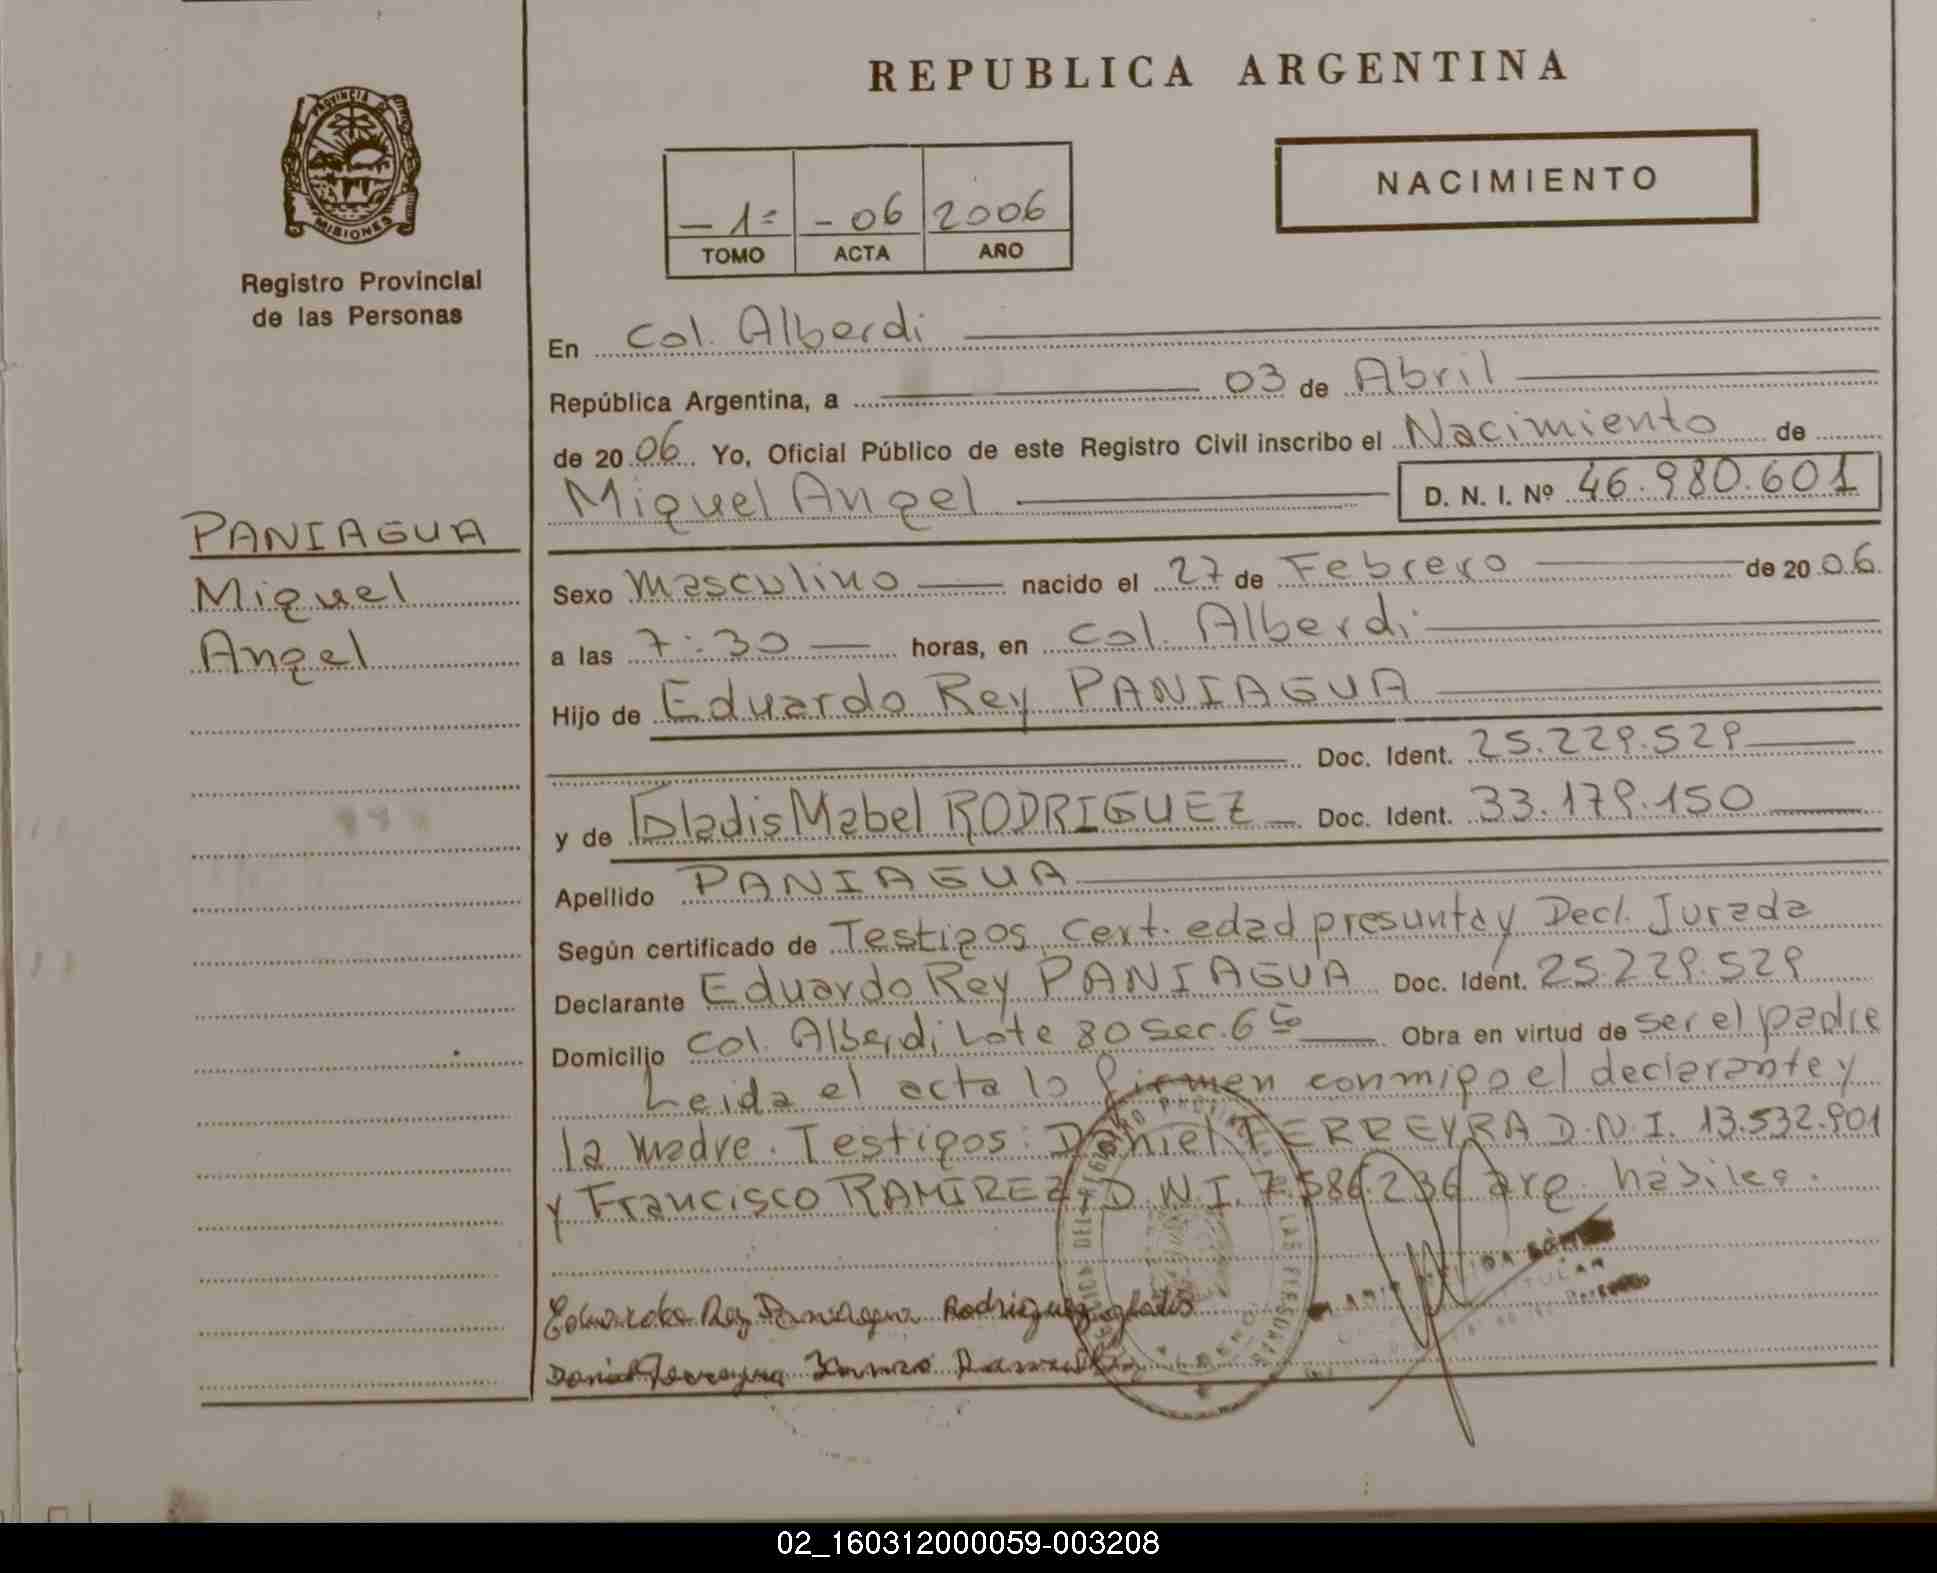 REPUBLICA ARGENTINA
NACIMIENTO
PROVINCIA DE
MISIONES
Registro Provincial
de las Personas
- 1= - 06 2006
TOMO ACTA AÑO
PANIAGUA
Miguel
Angel
En Col. Alberdi
República Argentina, a 03 de Abril
de 2006 Yo, Oficial Público de este Registro Civil inscribo el Nacimiento de
Miguel Angel D. N. I. Nº 46.980.601
Sexo masculino nacido el 27 de Febrero de 2006
a las 7:30 horas, en Col. Alberdi
Hijo de Eduardo Rey PANIAGUA
Doc. Ident. 25.229.529
y de Gladis Mabel RODRIGUEZ Doc. Ident. 33.179.150
Apellido PANIAGUA
Según certificado de Testigos, Cert. edad presunta y Decl. Jurada
Declarante Eduardo Rey PANIAGUA Doc. Ident. 25.229.529
Domicilio Col. Alberdi Lote 80 Sec. 6ta Obra en virtud de ser el padre
Leida el acta lo firman conmigo el declarante y
la madre. Testigos: Daniel FERREYRA D.N.I. 13.532.901
y Francisco RAMIREZ, D.N.I. 7.586.236 arg. hábiles.
Eduardo Rey Paniagua Rodriguez gladis
Daniel Ferreyra
02_160312000059-003208